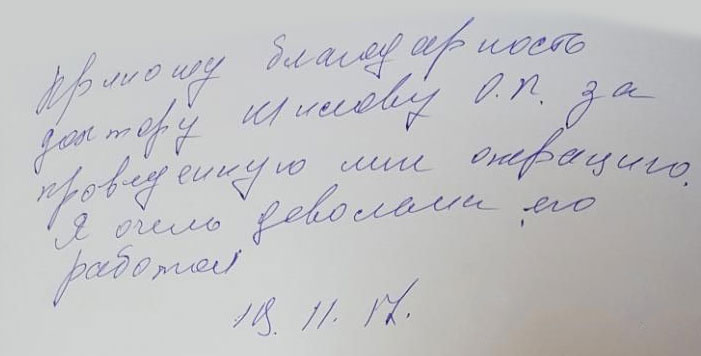 Приношу благодарность
доктору Шилову О.П. за
проведенную мне операцию.
Я очень довольна его
работой
19. 11. 17.